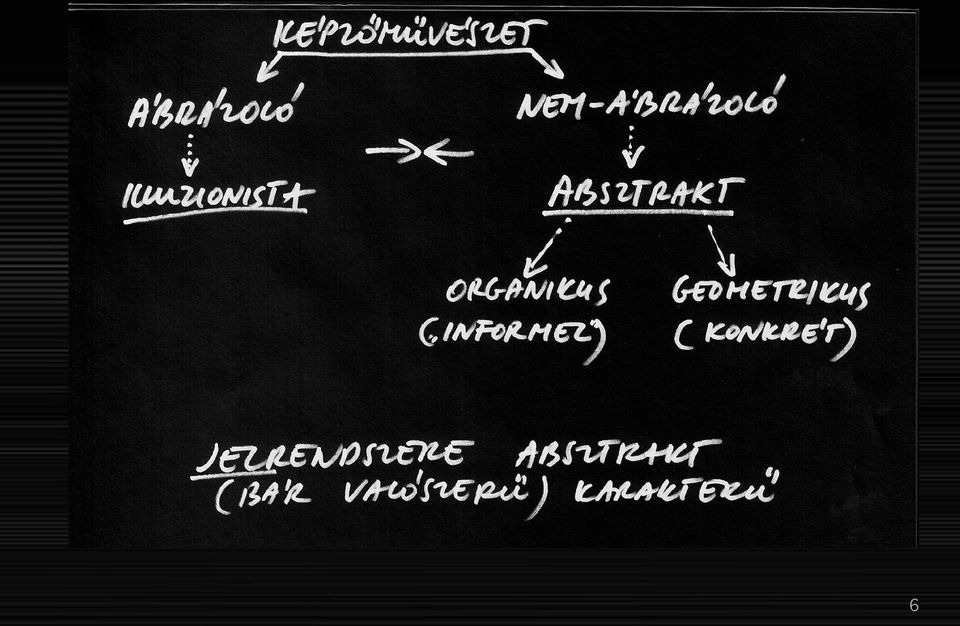 KÉPZŐMŰVÉSZET
ÁBRÁZOLÓ NEM-ÁBRÁZOLÓ
ILLUZIONISTA ABSZTRAKT
ORGANIKUS GEOMETRIKUS
(„INFORMEL”) (KONKRÉT)
JELRENDSZERE ABSZTRAKT
(BÁR VALÓSZERŰ) KARAKTERŰ
6